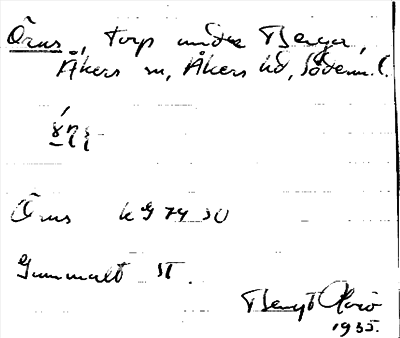 Örns, torp under Berga,
Åkers sn, Åkers hd, Söderm. l.
Örns kg 74 30
Gammalt st.
Bengt
1935.